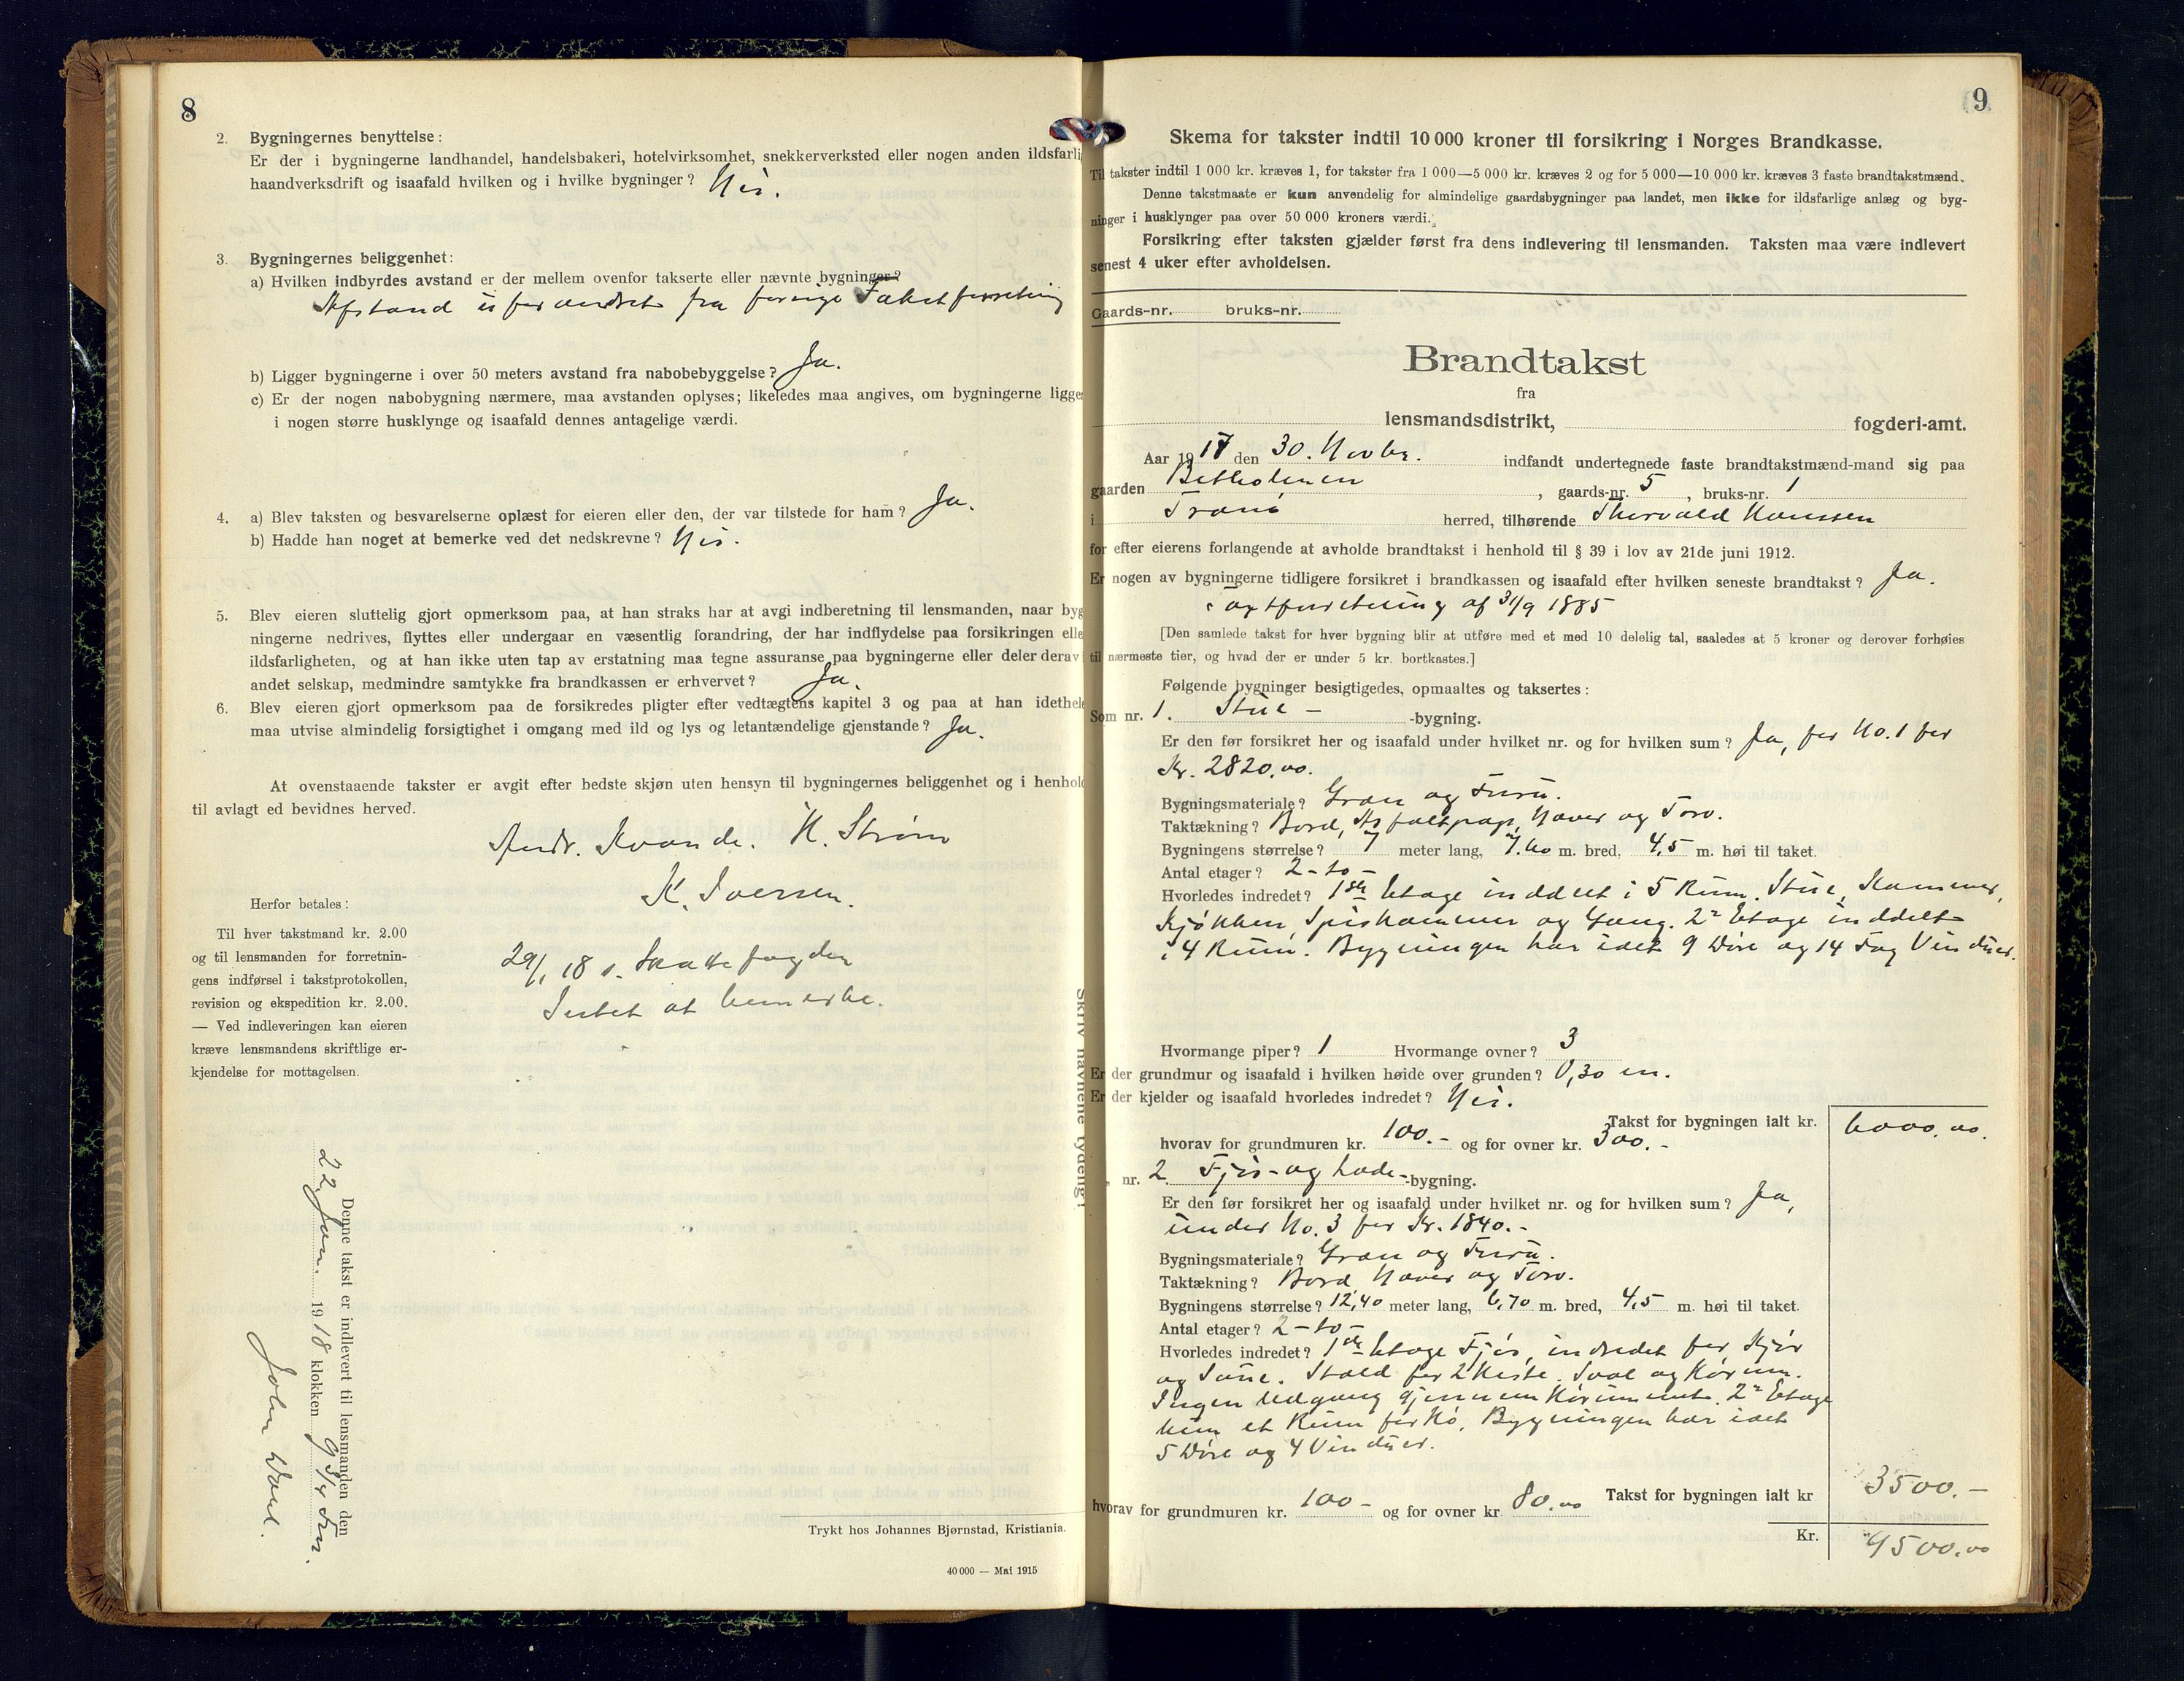 8
2. Bygningernes benyttelse:
Er der i bygningerne landhandel, handelsbakeri, hotelvirksomhet, snekkerverksted eller nogen anden ildsfarli
haandverksdrift og isaafald hvilken og i hvilke bygninger? Nei.
3. Bygningernes beliggenhet:
a) Hvilken indbyrdes avstand er der mellem ovenfor takserte eller nævnte bygninger?
Afstand uforandret fra forrige Takstforretning
b) Ligger bygningerne i over 50 meters avstand fra nabobebyggelse? Ja.
c) Er der nogen nabobygning nærmere, maa avstanden oplyses; likeledes maa angives, om bygningerne ligge
i nogen større husklynge og isaafald dennes antagelige værdi.
4. a) Blev taksten og besvarelserne oplæst for eieren eller den, der var tilstede for ham? Ja.
b) Hadde han noget at bemerke ved det nedskrevne? Nei.
5. Blev eieren sluttelig gjort opmerksom paa, at han straks har at avgi indberetning til lensmanden, naar byg
ningerne nedrives, flyttes eller undergaar en væsentlig forandring, der har indflydelse paa forsikringen elle
ildsfarligheten, og at han ikke uten tap av erstatning maa tegne assuranse paa bygningerne eller deler derav i
andet selskap, medmindre samtykke fra brandkassen er erhvervet? Ja.
6. Blev eieren gjort opmerksom paa de forsikredes pligter efter vedtægtens kapitel 3 og paa at han idethele
maa utvise almindelig forsigtighet i omgang med ild og lys og letantændelige gjenstande? Ja.
At ovenstaaende takster er avgit efter bedste skjøn uten hensyn til bygningernes beliggenhet og i henhold
til avlagt ed bevidnes herved.
Andr. Kvande. H. Strøm
K. Iversen.
Herfor betales:
Til hver takstmand kr. 2.00
og til lensmanden for forretnin-
gens indførsel i takstprotokollen,
revision og ekspedition kr. 2.00.
— Ved indleveringen kan eieren
kræve lensmandens skriftlige er-
kjendelse for mottagelsen.
29/1 18 s. Skattefogden
Intet at bemerke.
Denne takst er indlevert til lensmanden den
22. Jan. 1918 klokken 9 3/4 Fm.
John
Skriv navnene tydelig!
Trykt hos Johannes Bjørnstad, Kristiania.
40 000 — Mai 1915
9
Skema for takster indtil 10 000 kroner til forsikring i Norges Brandkasse.
Til takster indtil 1 000 kr. kræves 1, for takster fra 1 000—5 000 kr. kræves 2 og for 5 000—10 000 kr. kræves 3 faste brandtakstmænd.
Denne takstmaate er kun anvendelig for almindelige gaardsbygninger paa landet, men ikke for ildsfarlige anlæg og byg-
ninger i husklynger paa over 50 000 kroners værdi.
Forsikring efter taksten gjælder først fra dens indlevering til lensmanden. Taksten maa være indlevert
senest 4 uker efter avholdelsen.
Gaards-nr. bruks-nr.
Brandtakst
fra
lensmandsdistrikt, fogderi-amt.
Aar 1917 den 30. Novbr. indfandt undertegnede faste brandtakstmænd-mand sig paa
gaarden Betholmen, gaards-nr. 5, bruks-nr. 1
i Tranø herred, tilhørende Thorvald Hanssen
for efter eierens forlangende at avholde brandtakst i henhold til § 39 i lov av 21de juni 1912.
Er nogen av bygningerne tidligere forsikret i brandkassen og isaafald efter hvilken seneste brandtakst? Ja.
Taxtforretning af 31/9 1885
[Den samlede takst for hver bygning blir at utføre med et med 10 delelig tal, saaledes at 5 kroner og derover forhøies
til nærmeste tier, og hvad der er under 5 kr. bortkastes.]
Følgende bygninger besigtigedes, opmaaltes og taksertes:
Som nr. 1. Stue- -bygning.
Er den før forsikret her og isaafald under hvilket nr. og for hvilken sum? Ja, for No. 1 for
Kr. 2820.00.
Bygningsmateriale? Gran og Furu.
Taktækning? Bord, Asfaltpap, Næver og Torv.
Bygningens størrelse? 7 meter lang, 7.60 m. bred, 4,5 m. høi til taket.
Antal etager? 2 - to -
Hvorledes indredet? 1ste Etage inddelt i 5 Rum. Stue, Kammer,
Kjøkken, Spiskammer og Gang. 2n Etage inddelt
i 4 Rum. Bygningen har ialt 9 Døre og 14 Fag Vinduer.
Hvormange piper? 1 Hvormange ovner? 3
Er der grundmur og isaafald i hvilken høide over grunden? 0,30 m.
Er der kjelder og isaafald hvorledes indredet? Nei.
Takst for bygningen ialt kr. 6000.00.
hvorav for grundmuren kr. 100.- og for ovner kr. 300.-
„ nr. 2. Fjøs- og Lade- -bygning.
Er den før forsikret her og isaafald under hvilket nr. og for hvilken sum? Ja,
under No. 3 for Kr. 1840.-
Bygningsmateriale? Gran og Furu.
Taktækning? Bord, Næver og Torv.
Bygningens størrelse? 12,40 meter lang, 6,70 m. bred, 4,5 m. høi til taket.
Antal etager? 2 - to -
Hvorledes indredet? 1ste Etage Fjøs, indredet for Kjør
og Saue. Stald for 2 Heste. Sval og Hørum.
Ingen Udgang gjennem Hørummet. 2n Etage
kun et Rum for Hø. Bygningen har ialt
5 Døre og 4 Vinduer.
Takst for bygningen ialt kr 3500.-
hvorav for grundmuren kr. 100- og for ovner kr. 80.00
Kr. 9500.00